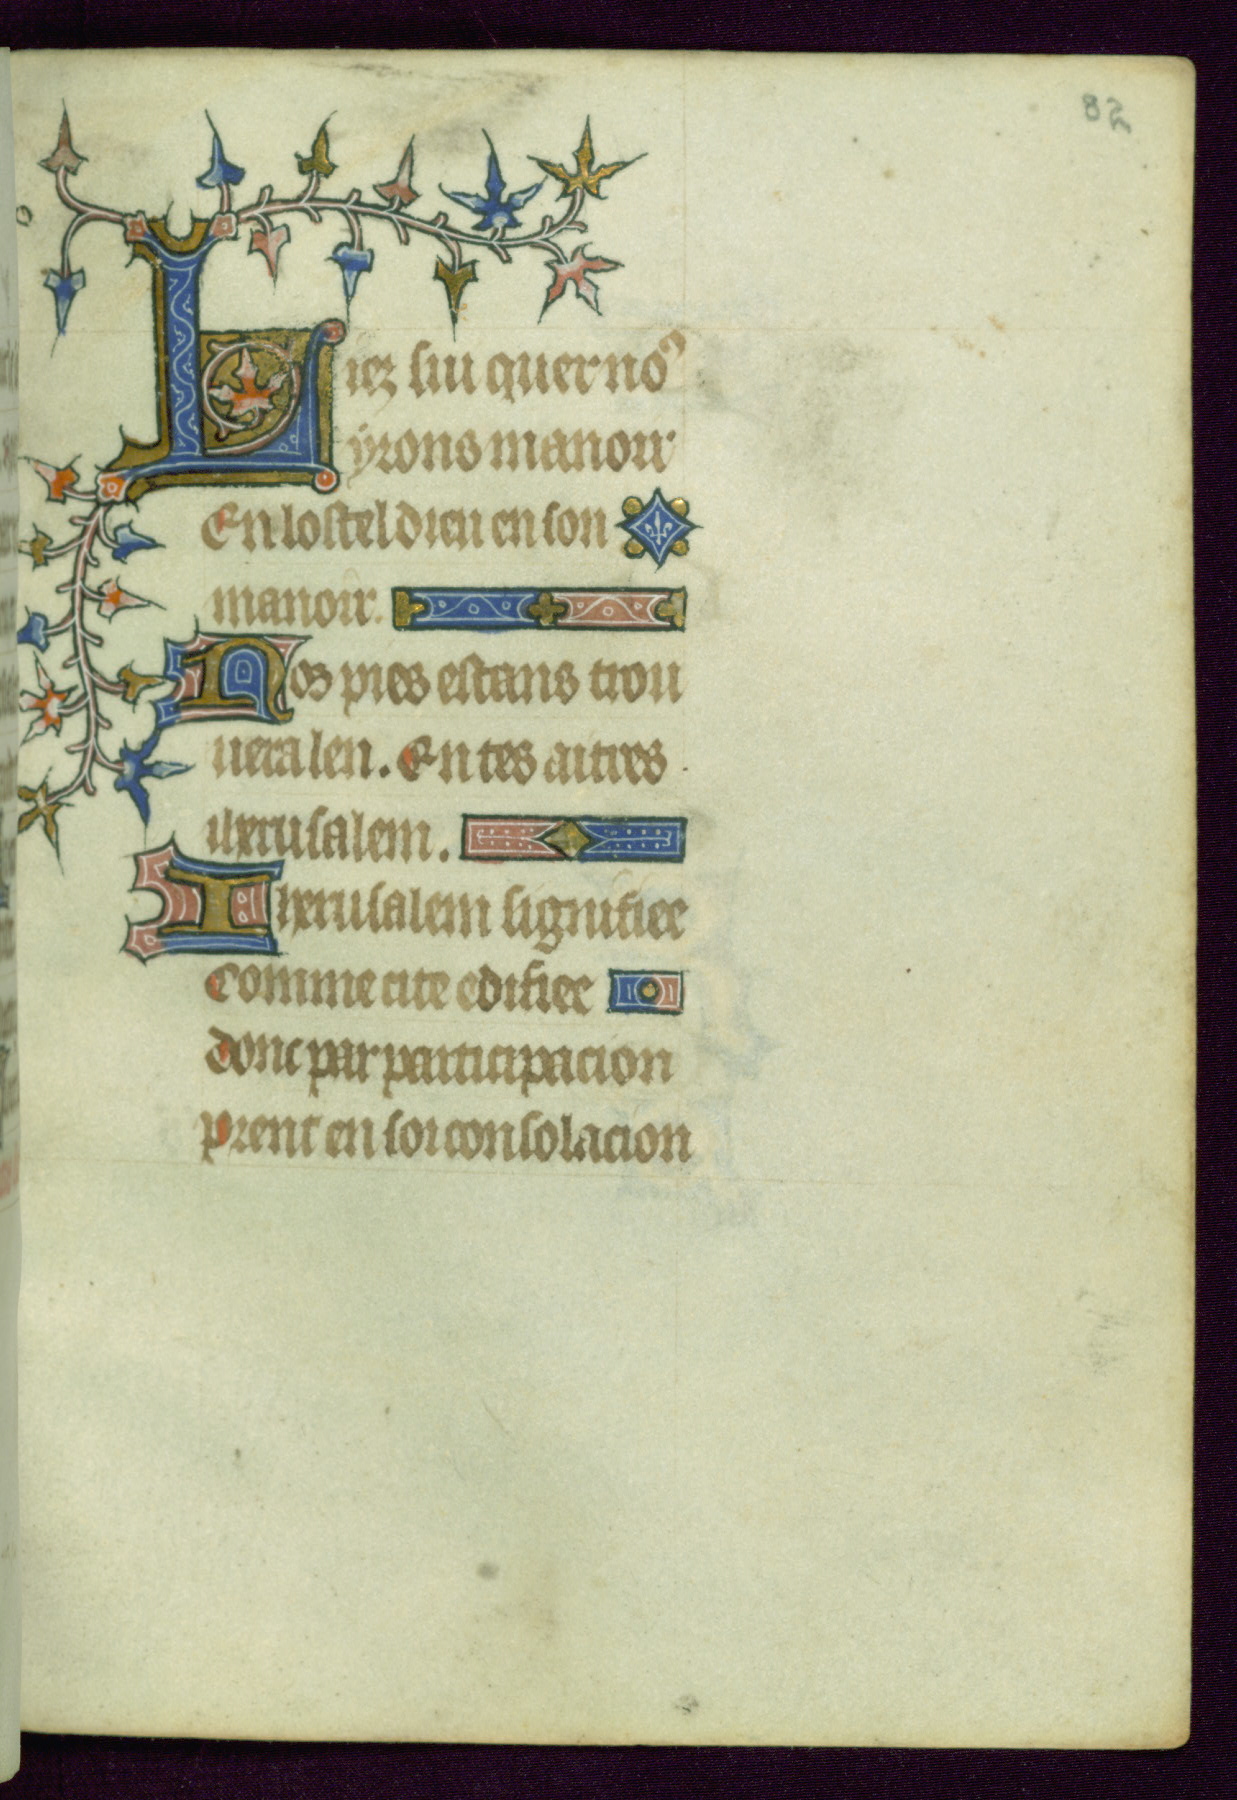 82
Liez sui quer no⁹
yrons manoir
En lostel dieu en son
manoir.
Nos pies estans trou
uera len. En tes aitres
iherusalem.
Iherusalem signifiee
Comme cite edifiee
donc par participacion
Prent en soi consolacion